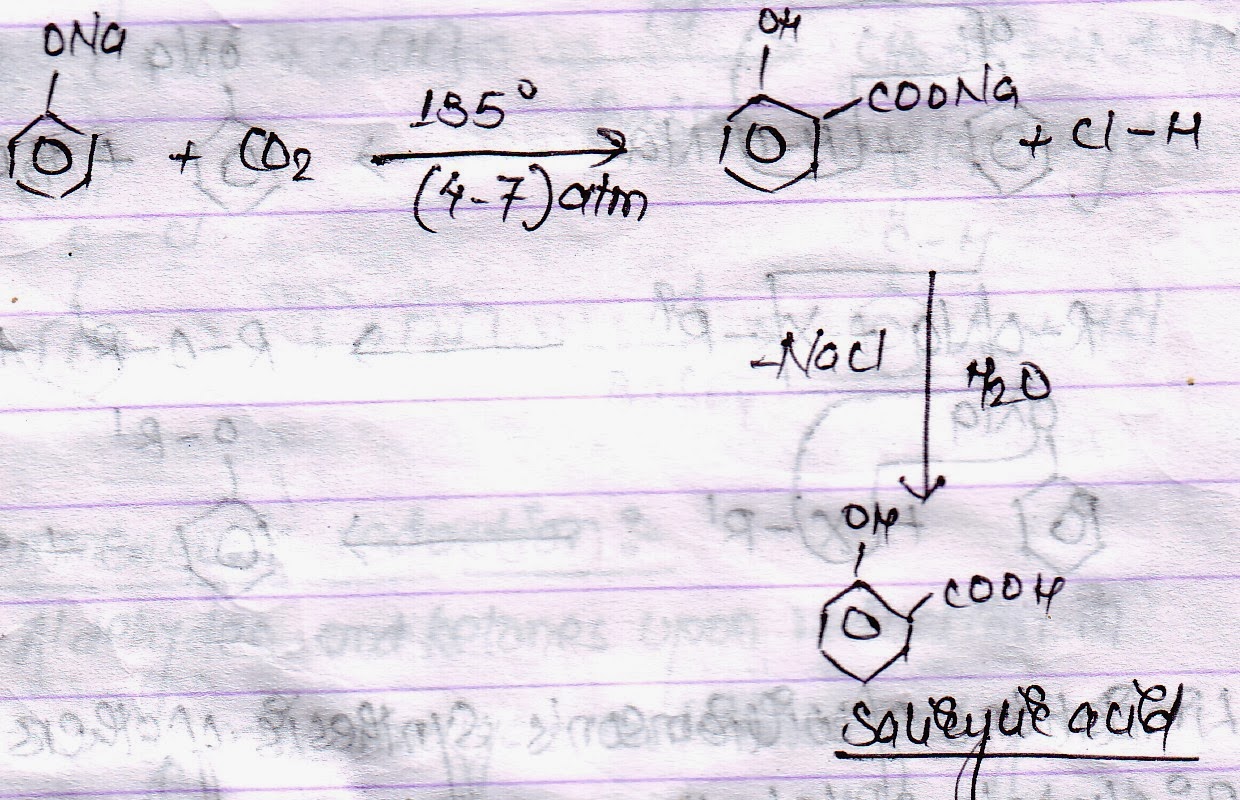 ONa
+ CO2
135°
(4-7) atm
OH
COONa
+ Cl-H
-NaCl
H2O
OH
COOH
Salicylic acid